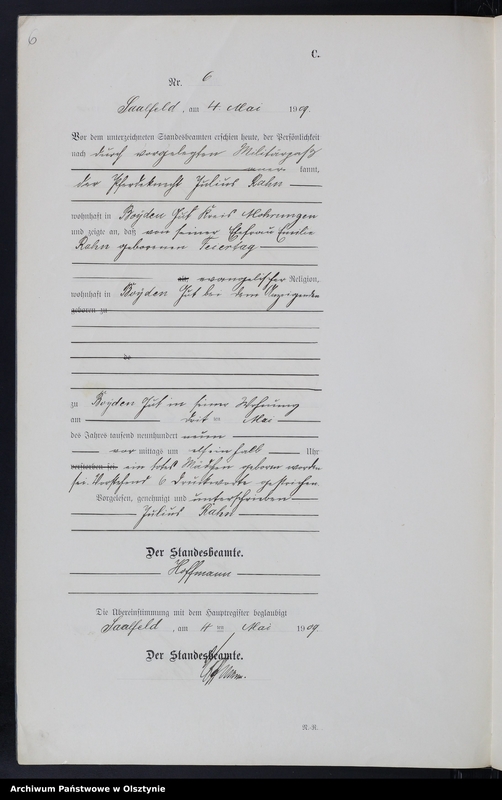 6
C.
Nr. 6
Saalfeld, am 4. Mai 1909.
Vor dem unterzeichneten Standesbeamten erschien heute, der Persönlichkeit
nach durch vorgelegten Militärpaß
anerkannt,
der Pferdeknecht Julius Rahn
wohnhaft in Boyden Gut Kreis Mohrungen
und zeigte an, daß von seiner Ehefrau Emilie
Rahn geborenen Feiertag
evangelischer Religion,
wohnhaft in Boyden Gut bei dem Anzeigenden
geboren zu
zu Boyden Gut in seiner Wohnung
am drit ten Mai
des Jahres tausend neunhundert neun
vor mittags um elfeinhalb Uhr
verstorben sei ein totes Mädchen geboren worden
sei. Vorstehend 6 Druckworte gestrichen.
Vorgelesen, genehmigt und unterschrieben
Julius Rahn
Der Standesbeamte.
Hoffmann
Die Übereinstimmung mit dem Hauptregister beglaubigt
Saalfeld, am 4 ten Mai 1909.
Der Standesbeamte.
Archiwum Państwowe w Olsztynie